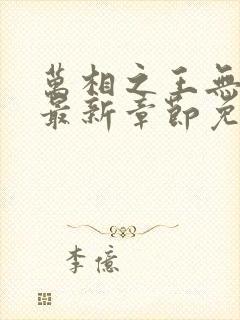 萬相之王無
最新章節免
李億